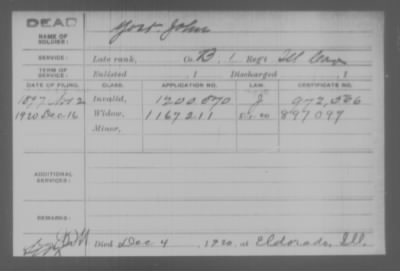 DEAD
NAME OF SOLDIER: Yost, John
SERVICE: Late rank, Co. B, 1 Reg't Ill Cav
TERM OF SERVICE: Enlisted , 1 Discharged , 1
DATE OF FILING. CLASS. APPLICATION NO. LAW. CERTIFICATE NO.
1897 2 Invalid, 1200.070 J 972,
1920 Dec. 16 Widow, 1167211 897097
Minor,
ADDITIONAL SERVICES:
REMARKS:
Died Dec 4, 1920, at Eldorado, Ill.